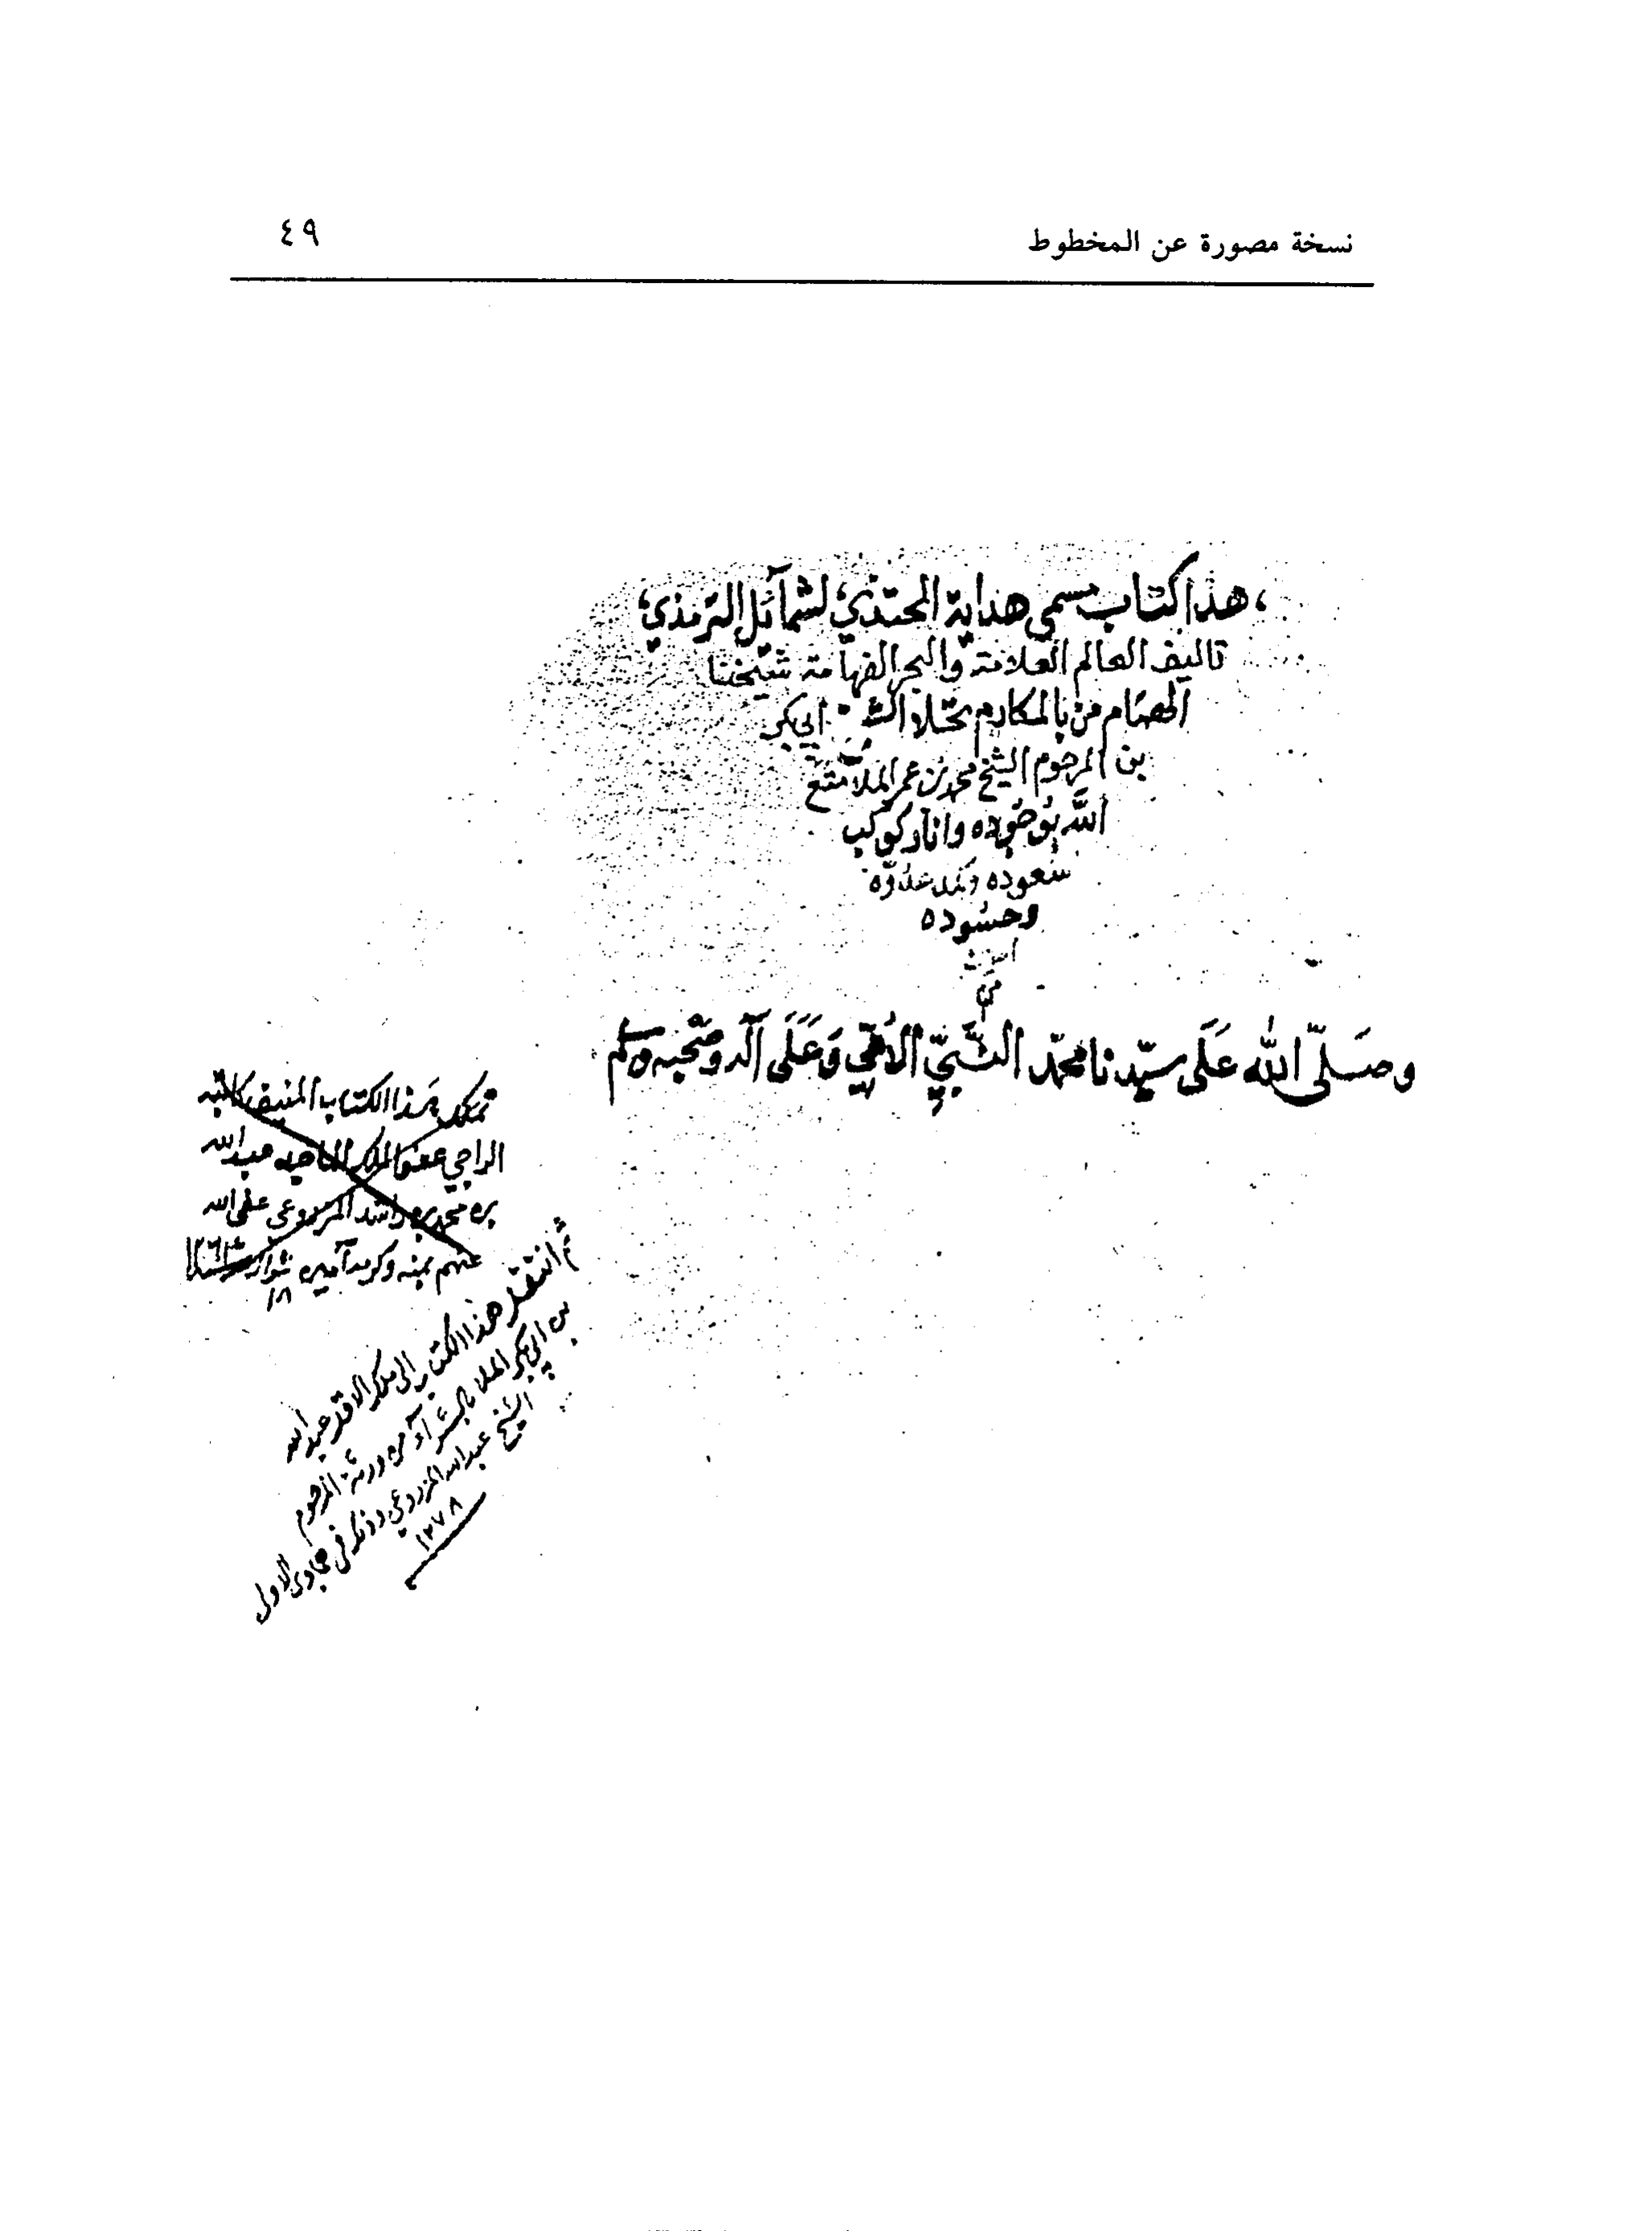 نسخة مصورة عن المخطوط
٤٩
هذا كتاب يسمى هداية المحتذي لشمآئل الترمذي
تاليف العالم العلامة والبحر الفهامة شيخنا
من بالمكارم ابي بكر
بن المرحوم الشيخ محمد بن عمر الملا متع
الله بوجوده وانار كوكب
سعوده عدوّه
وحسوده
امين
وصَلّى الله عَلَى سيّدنا محمّد النَّبيّ الأُمّي وَعَلَى آله وصَحْبه وسلم
هذا الكتاب المنيف كاتبه
الراجي عفو عبدالله
بن محمد بن راشد المزروعي عفى الله
عنهم بمنه وكرمه آمين
١٨
ثم انتقل هذا الكتاب الى ملك عبدالله
بن ابي بكر الملا بالشرآء من ورثة المرحوم
الشيخ عبدالله المزروعي وذلك في جمادى الاولى
١٢٧٨